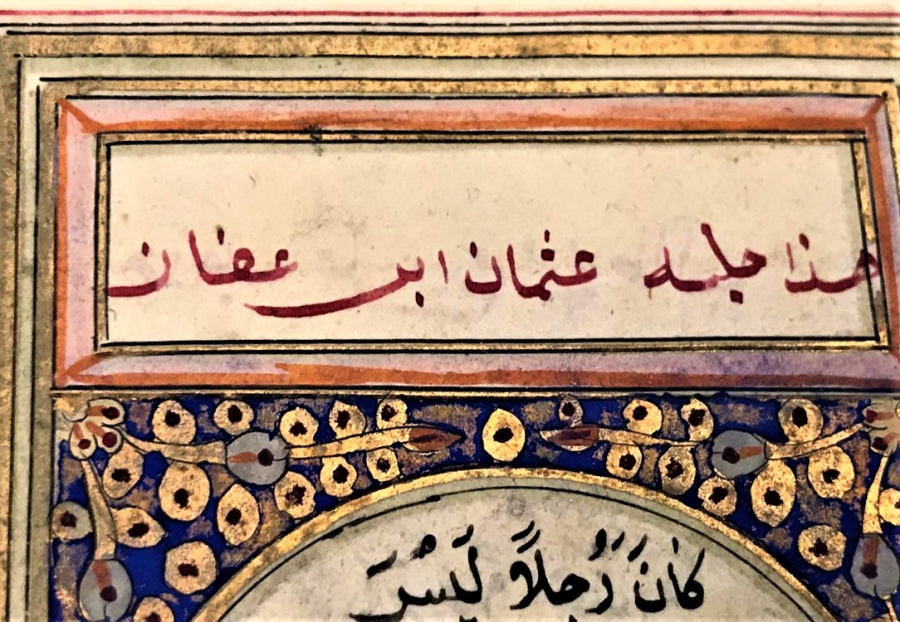 هذا حليه عثمان ابن عفان
كانَ رَجُلاً لَيْسَ